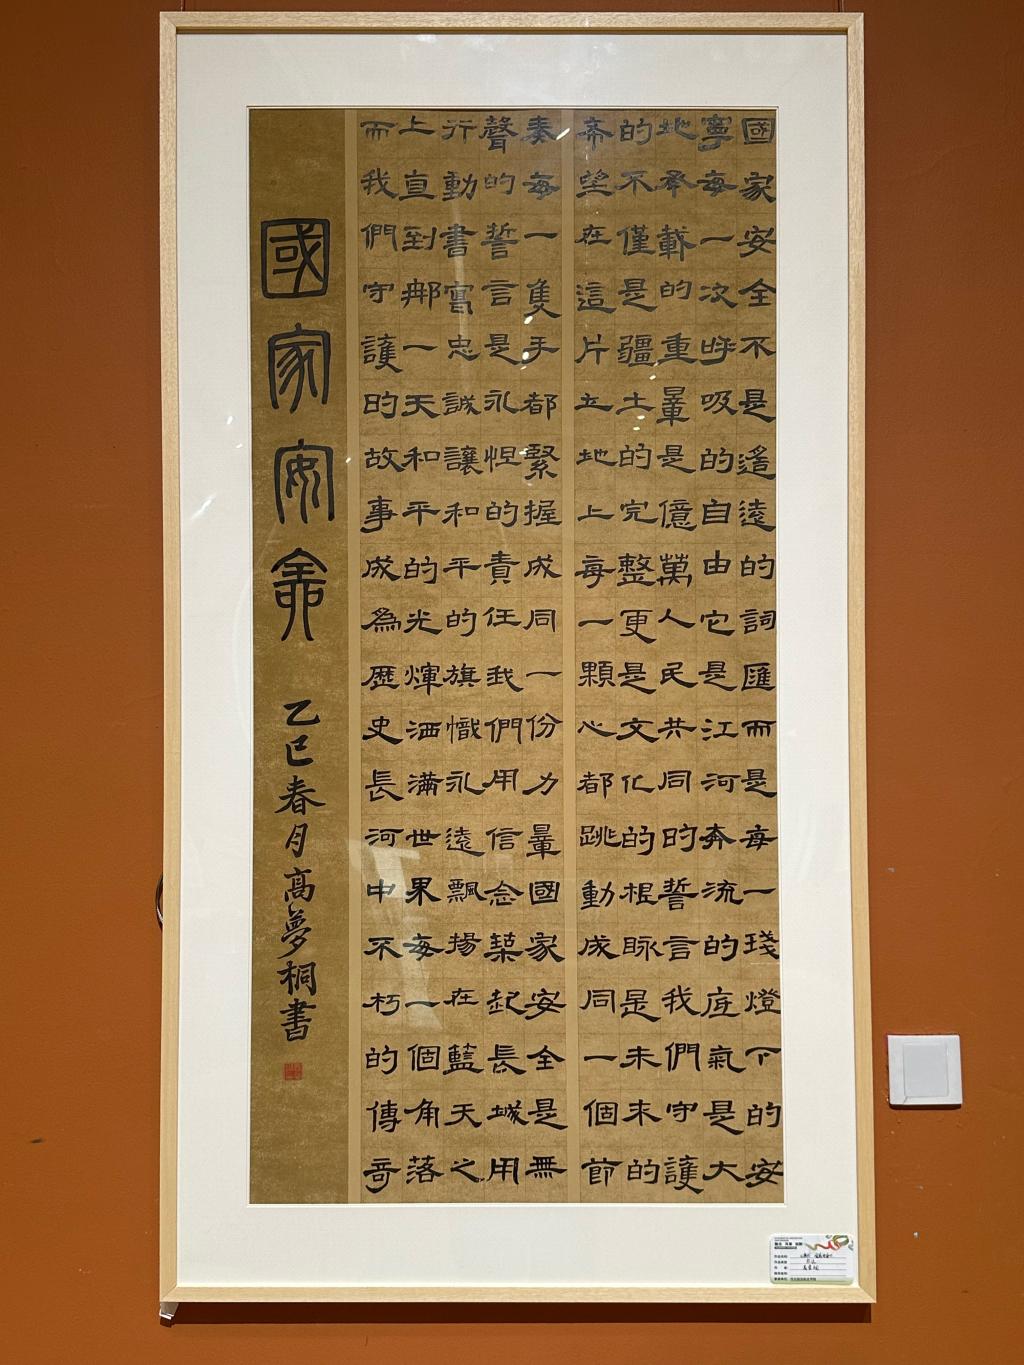 國家安全不是遙遠的詞匯而是每一琖燈下的安
寧每一次呼吸的自由它是江河奔流的底氣是大
地承載的重量是億萬人民共同的誓言我們守護
的不僅是疆土的完整更是文化的根脉是未末的
希望在這片土地上每一顆心都跳動成同一個節
奏每一隻手都緊握成同一份力量國家安全是無
聲的誓言是永恒的責任我們用信念築起長城用
行動書寫忠誠讓和平的旗幟永遠飄揚在藍天之
上直到那一天和平的光煇洒滿世果每一個角落
而我們守護的故事成為歷史長河中不朽的傳奇
國家安全
乙巳春月高夢桐書